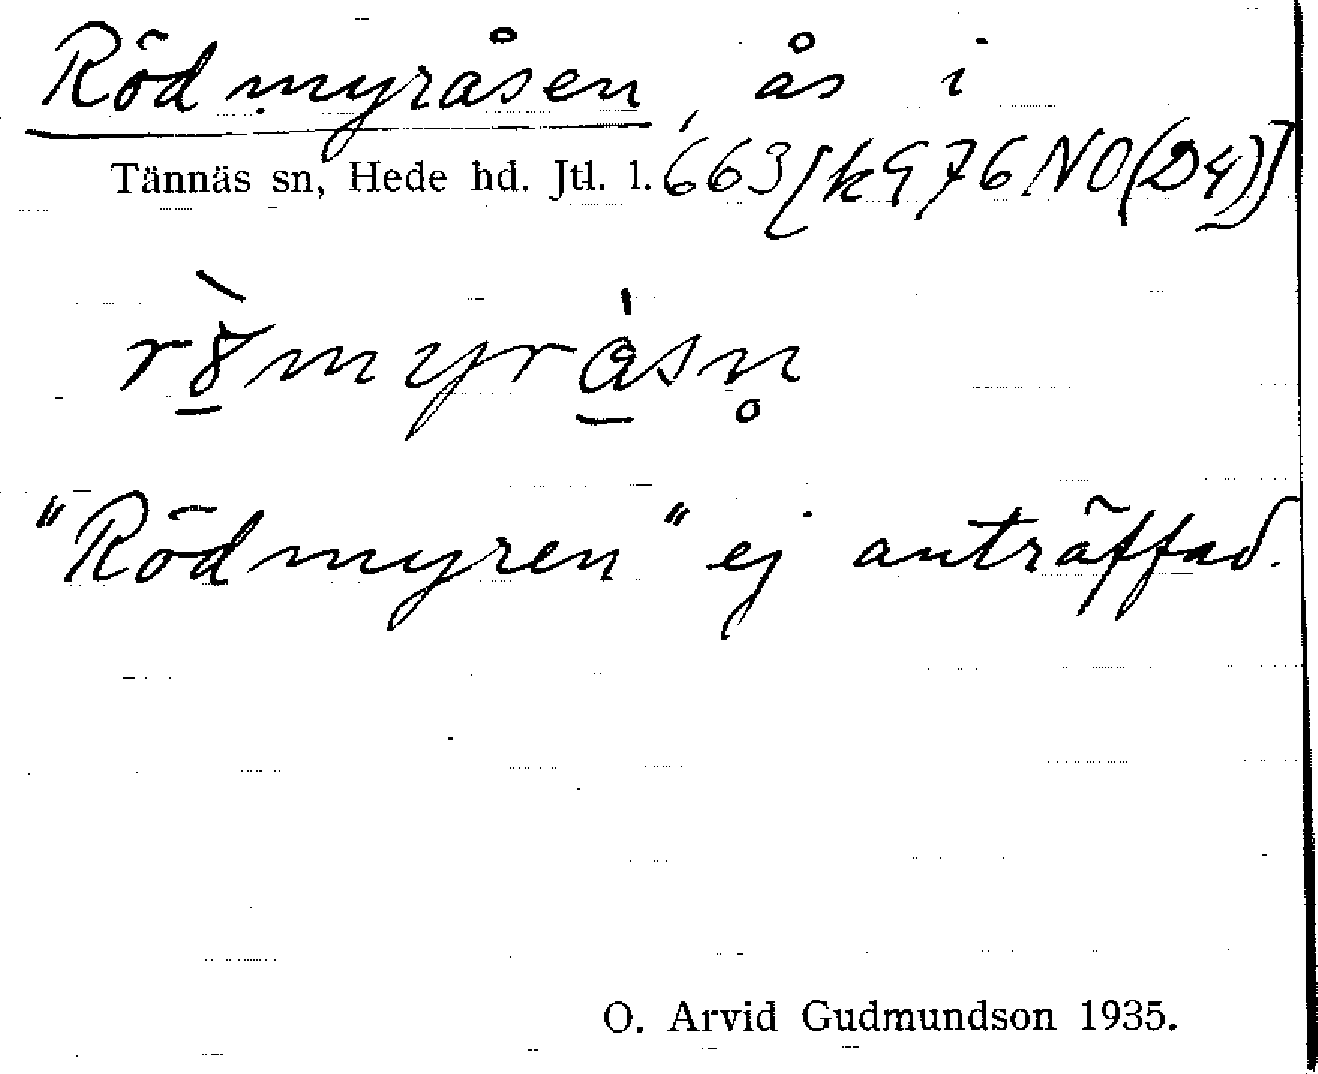 Rödmyråsen, ås i
Tännäs sn, Hede hd. Jtl. l. 663 [k976NO(D4)]
rò̱myrå̱sn̥
"Rödmyren" ej anträffad.
O. Arvid Gudmundson 1935.